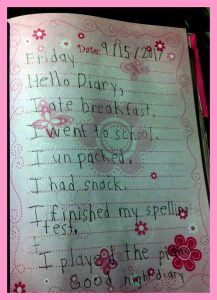 Friday Date: 9/15/2017
Hello Diary,
I ate breakfast.
I went to school.
I unpacked.
I had snack.
I finished my spelling
test.
I
I played the
Good night diary